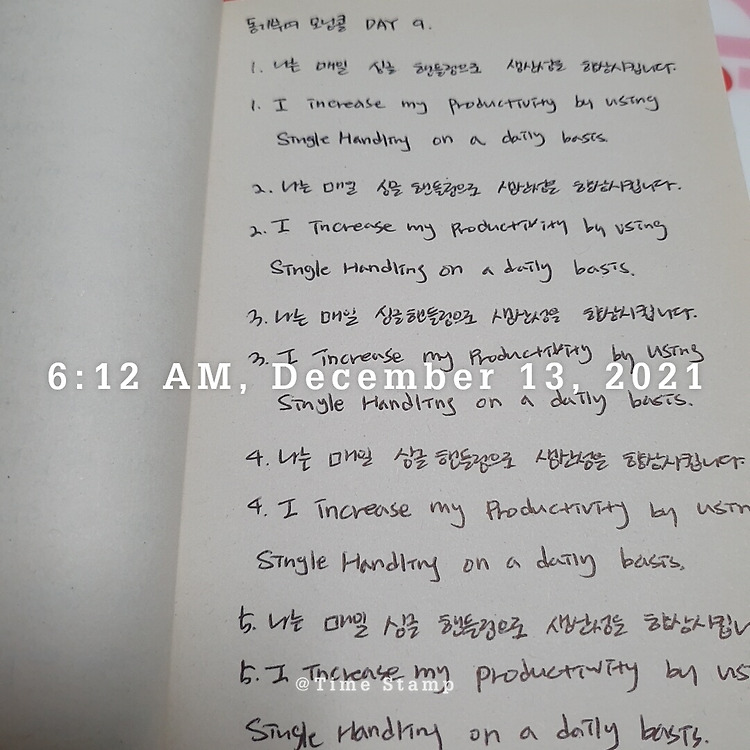 동기부여 모닝콜 DAY 9.
1. 나는 매일 싱글 핸들링으로 생산성을 향상시킵니다.
1. I increase my productivity by using
Single Handling on a daily basis.
2. 나는 매일 싱글 핸들링으로 생산성을 향상시킵니다.
2. I increase my productivity by using
Single Handling on a daily basis.
3. 나는 매일 싱글핸들링으로 생산성을 향상시킵니다.
3. I increase my productivity by using
6:12 AM, December 13, 2021
Single Handling on a daily basis.
4. 나는 매일 싱글 핸들링으로 생산성을 향상시킵니다.
4. I increase my productivity by usin
Single Handling on a daily basis.
5. 나는 매일 싱글 핸들링으로 생산성을 향상시킵니
5. I increase my productivity by us
@Time Stamp
Single Handling on a daily basis.